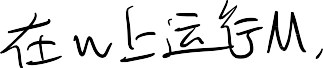 在w上运行M,